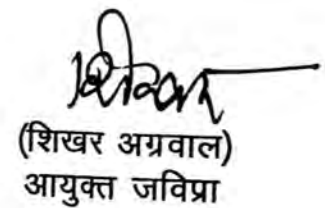 शिखर
(शिखर अग्रवाल)
आयुक्त जविप्रा